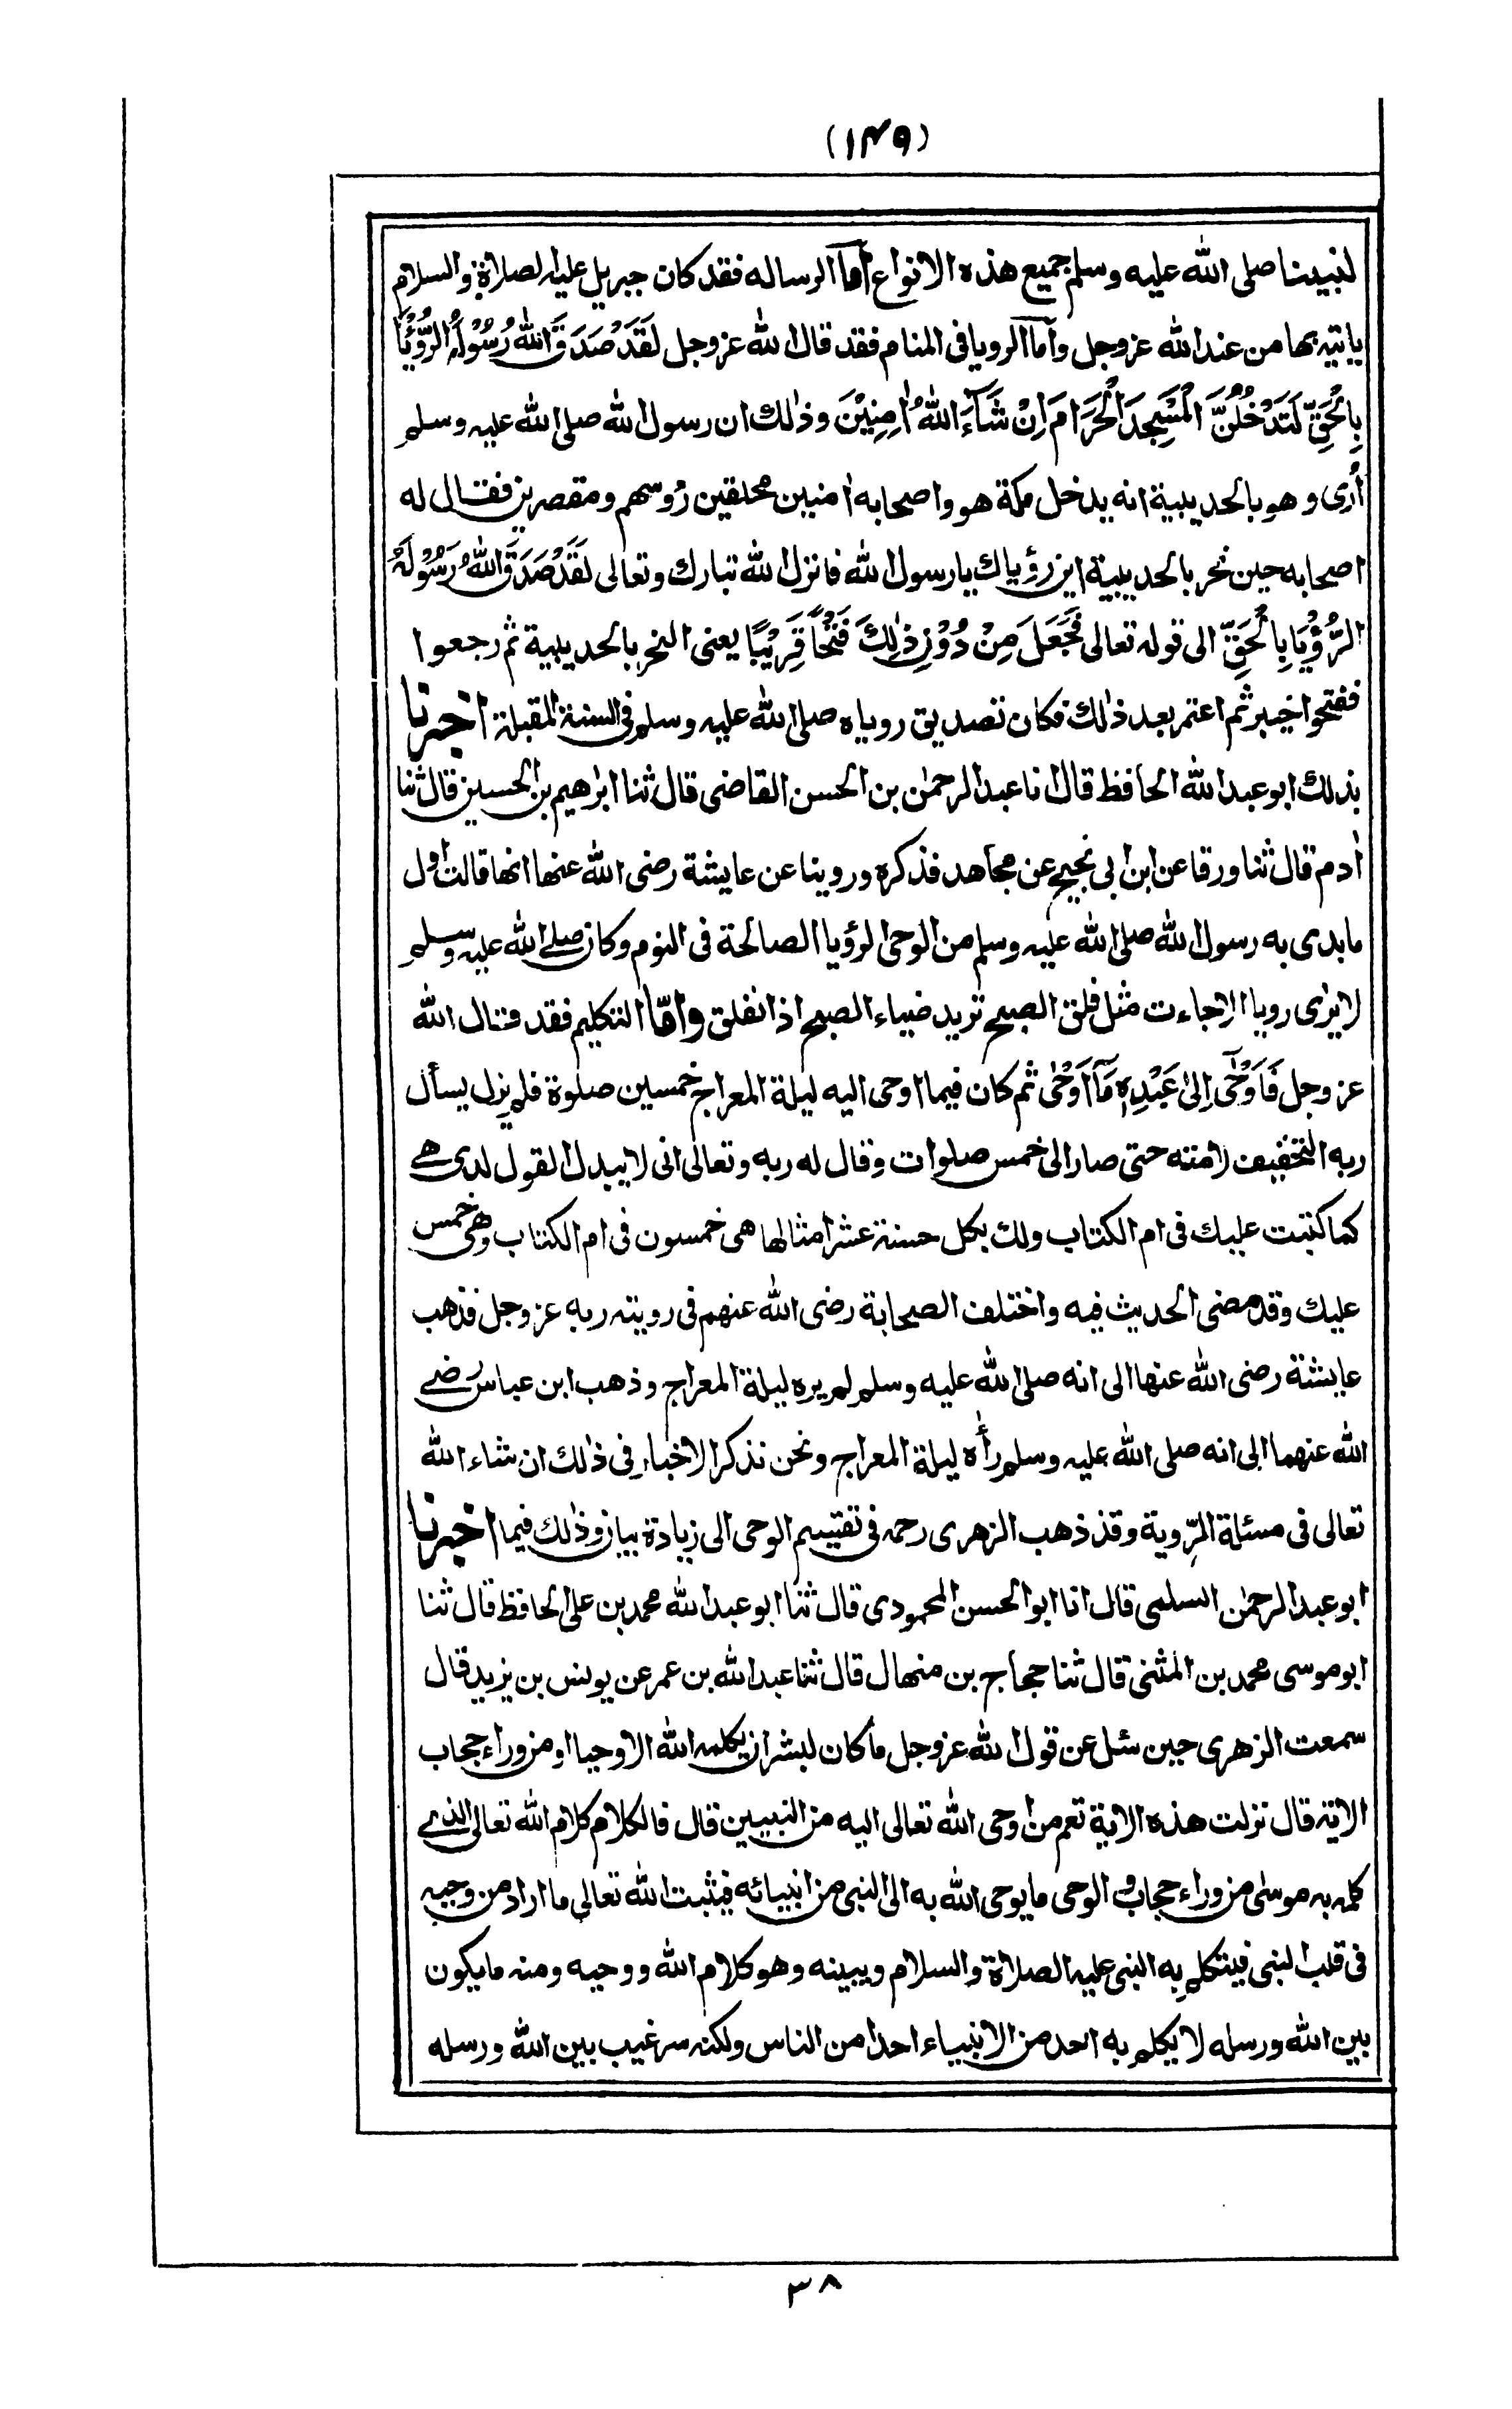 (١٤٩)
لنبينا صلى الله عليه وسلم جميع هذه الانواع أما الرساله فقد كان جبريل عليه الصلاة والسلام
ياتيه بها من عند الله عزوجل وأما الرويا فى المنام فقد قال الله عزوجل لَقَدْ صَدَقَ اللّٰهُ رَسُوْلَهُ الرُّؤْيَا
بِالْحَقِّ لَتَدْخُلُنَّ الْمَسْجِدَ الْحَرَامَ اِنْ شَآءَ اللّٰهُ اٰمِنِيْنَ وذٰلك ان رسول الله صلى الله عليه وسلم
أُرى وهو بالحديبية انه يدخل مكة هو واصحابه اٰمنين محلقين رؤسهم ومقصرين فقال له
اصحابه حين نحر بالحديبية اين رؤياك يا رسول الله فانزل الله تبارك وتعالى لَقَدْ صَدَقَ اللّٰهُ رَسُوْلَهُ
الرُّؤْيَا بِالْحَقِّ الى قوله تعالى فَجَعَلَ مِنْ دُوْنِ ذٰلِكَ فَتْحًا قَرِيْبًا يعنى النحر بالحديبية ثم رجعوا
ففتحوا خيبر ثم اعتمر بعد ذٰلك فكان تصديق روياه صلى الله عليه وسلم فى السنة المقبلة اخبرنا
بذلك ابو عبد الله الحافظ قال انا عبد الرحمٰن بن الحسن القاضى قال ثنا ابرٰهيم بن الحسين قال ثنا
اٰدم قال ثنا ورقا عن ابن ابى نجيح عن مجاهد فذكره وروينا عن عايشة رضى الله عنها انها قالت اول
ما بدى به رسول الله صلى الله عليه وسلم من الوحى الرؤيا الصالحة فى النوم وكان صلى الله عليه وسلم
لا يرٰى رويا الا جاءت مثل فلق الصبح تريد ضياء الصبح اذا انفلق وامّا التكليم فقد قال الله
عزوجل فَاَوْحٰٓى اِلىٰ عَبْدِهٖ مَآ اَوْحٰى ثم كان فيما اوحى اليه ليلة المعراج خمسين صلوة فلم يزل يسأل
ربه التخفيف لامته حتى صار الى خمس صلوات وقال له ربه وتعالى انى لا يبدل القول لدى هى
كما كتبت عليك فى ام الكتاب ولك بكل حسنة عشر امثالها هى خمسون فى ام الكتاب وهى خمس
عليك وقد مضى الحديث فيه واختلف الصحابة رضى الله عنهم فى رويته ربه عزوجل فذهب
عايشة رضى الله عنها الى انه صلى الله عليه وسلم لم يره ليلة المعراج وذهب ابن عباس رضى
الله عنهما الى انه صلى الله عليه وسلم رأٰه ليلة المعراج ونحن نذكر الاخبار فى ذٰلك ان شاء الله
تعالى فى مسئلة الرِّوية وقد ذهب الزهرى رحمه فى تقسيم الوحى الى زيادة بيان وذٰلك فيما اخبرنا
ابو عبد الرحمٰن السلمى قال انا ابو الحسن المحمودى قال ثنا ابو عبد الله محمد بن على الحافظ قال ثنا
ابو موسى محمد بن المثنى قال ثنا حجاج بن منهال قال ثنا عبد الله بن عمر عن يونس بن يزيد قال
سمعت الزهرى حين سئل عن قول الله عزوجل ما كان لبشر ان يكلمه الله الا وحيا او من وراء حجاب
الاية قال نزلت هذه الاية تعم من اوحى الله تعالى اليه من النبيين قال فالكلام كلام الله تعالى الذى
كلمه به موسى من وراء حجاب والوحى ما يوحى الله به الى النبى من انبيائه فيثبت الله تعالى ما اراد من وحيه
فى قلب النبى فيتكلم به النبى عليه الصلاة والسلام ويبينه وهو كلام الله ووحيه ومنه ما يكون
بين الله ورسله لا يكلم به احد من الانبياء احدا من الناس ولكنه سر غيب بين الله ورسله
٣٨